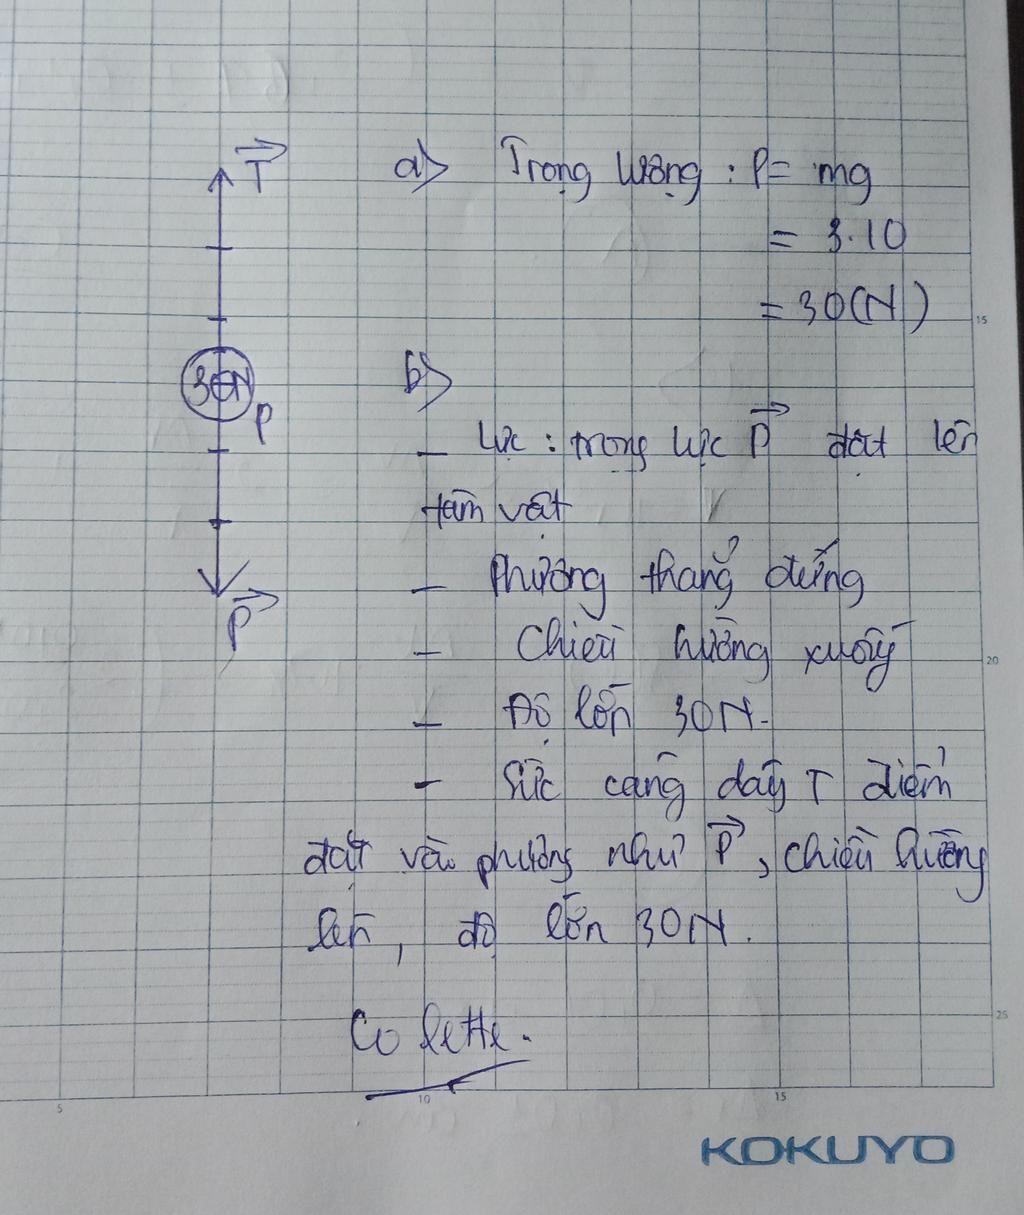 T
a) Trọng lượng : P = mg
= 3.10
= 30(N)
30N
P
b)
- Lực : trọng lực P đặt lên
tâm vật
- Phương thẳng đứng
P
- Chiều hướng xuống
- Độ lớn 30N.
- Sức căng dây T điểm
đặt và phương như P, chiều hướng
lên, độ lớn 30N.
Colette.
15
20
25
5
10
15
KOKUYO